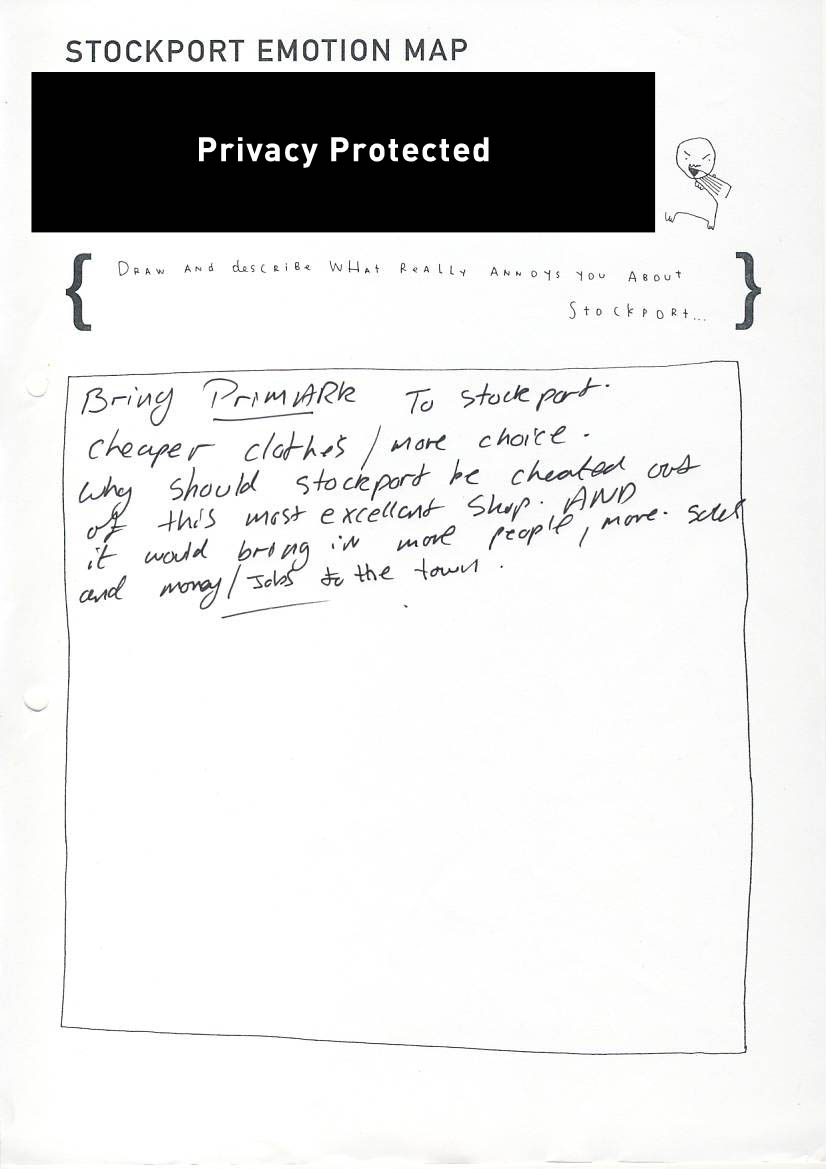 STOCKPORT EMOTION MAP
Privacy Protected
DRAW AND desCRiBe WHAt ReALLY ANNOYS YOU ABOUt
StOCkPORt...
Bring PrimARk To stockport.
cheaper clothes / more choice.
Why should stockport be cheated out
of this most excellent shop. AND
it would bring in more people, more. sales
and money/Jobs to the town.